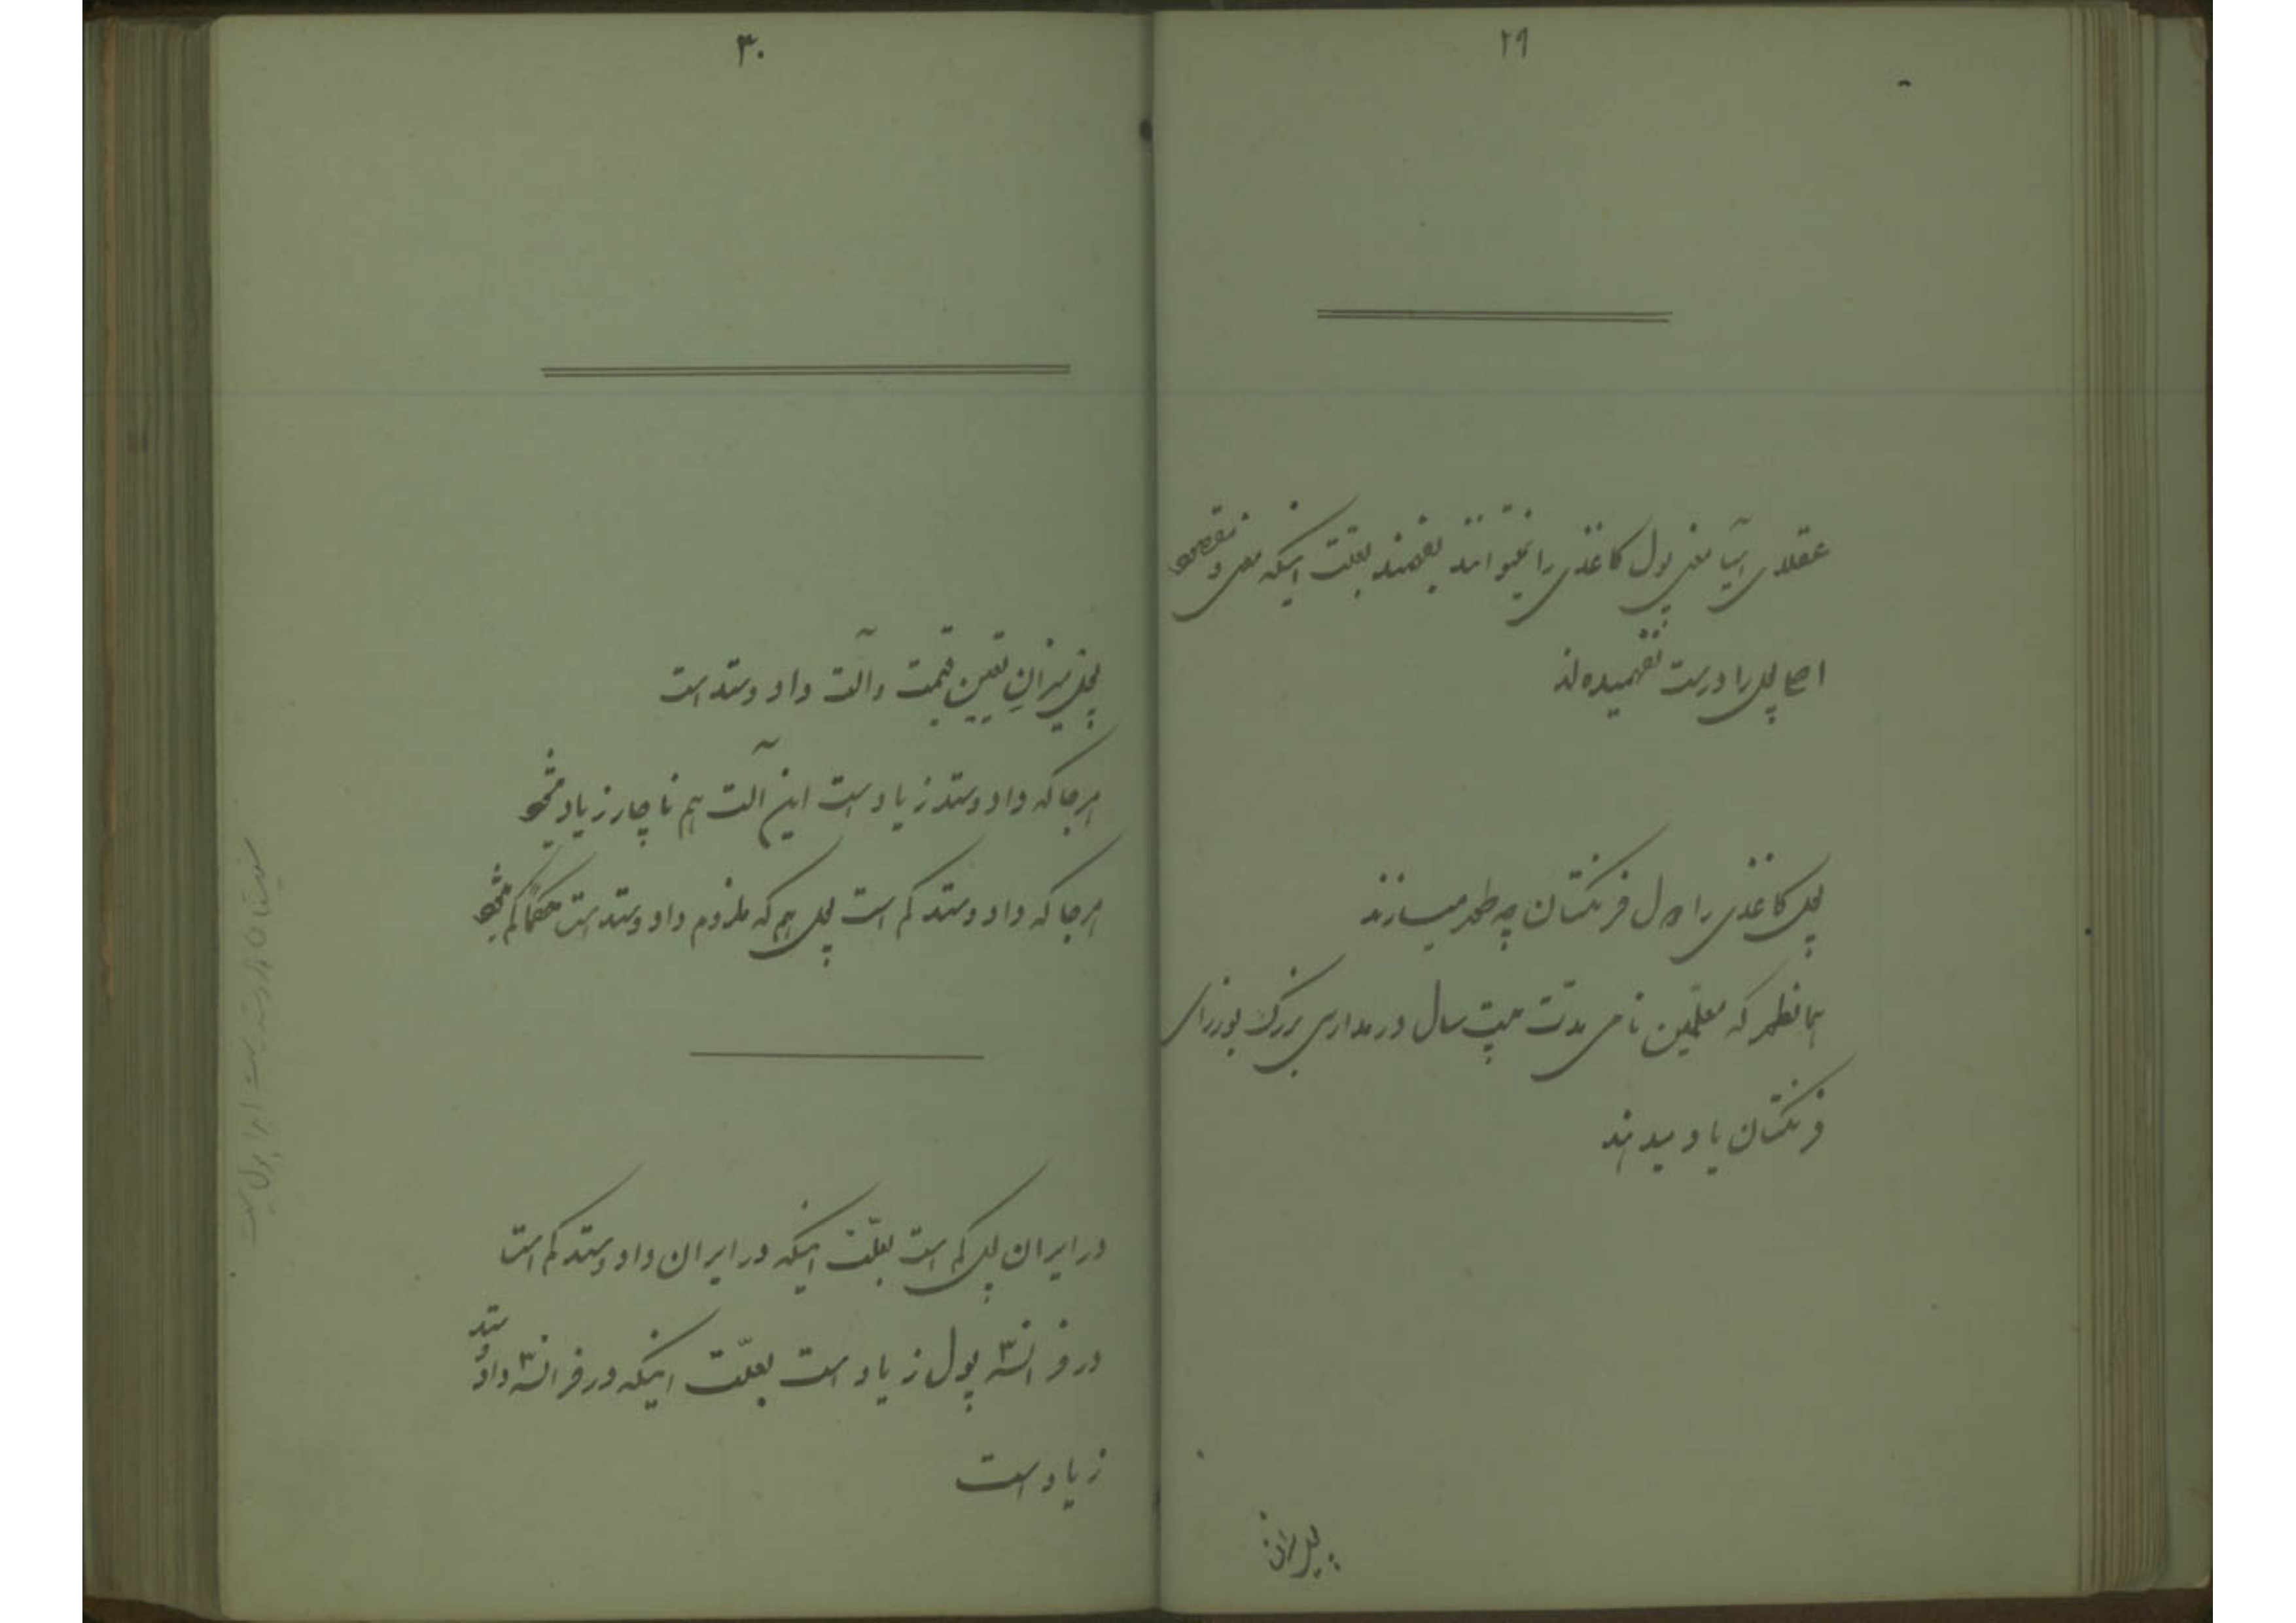 ۲۹
عقلای آسیا معنی پول کاغذی را نمیتوانند بفهمند بعلت اینکه معنی و مقصود
اصل پول را درست نفهمیده‌اند
پول کاغذی را دول فرنگستان چه طور میسازند
همانطور که معلمین نامی مدت بیست سال در مدارس بزرگ بوزرای
فرنگستان یاد میدهند
پول میزان
۳۰
پول میزانِ تعیین قیمت و آلت داد و ستد است
هر جا که داد و ستد زیاد است این آلت هم ناچار زیاد میشود
هر جا که داد و ستد کم است پول هم که ملزوم داد و ستد است حکماً کم میشود
در ایران پول کم است بعلّت اینکه در ایران داد و ستد کم است
در فرانسه پول زیاد است بعلّت اینکه در فرانسه داد و ستد
زیاد است